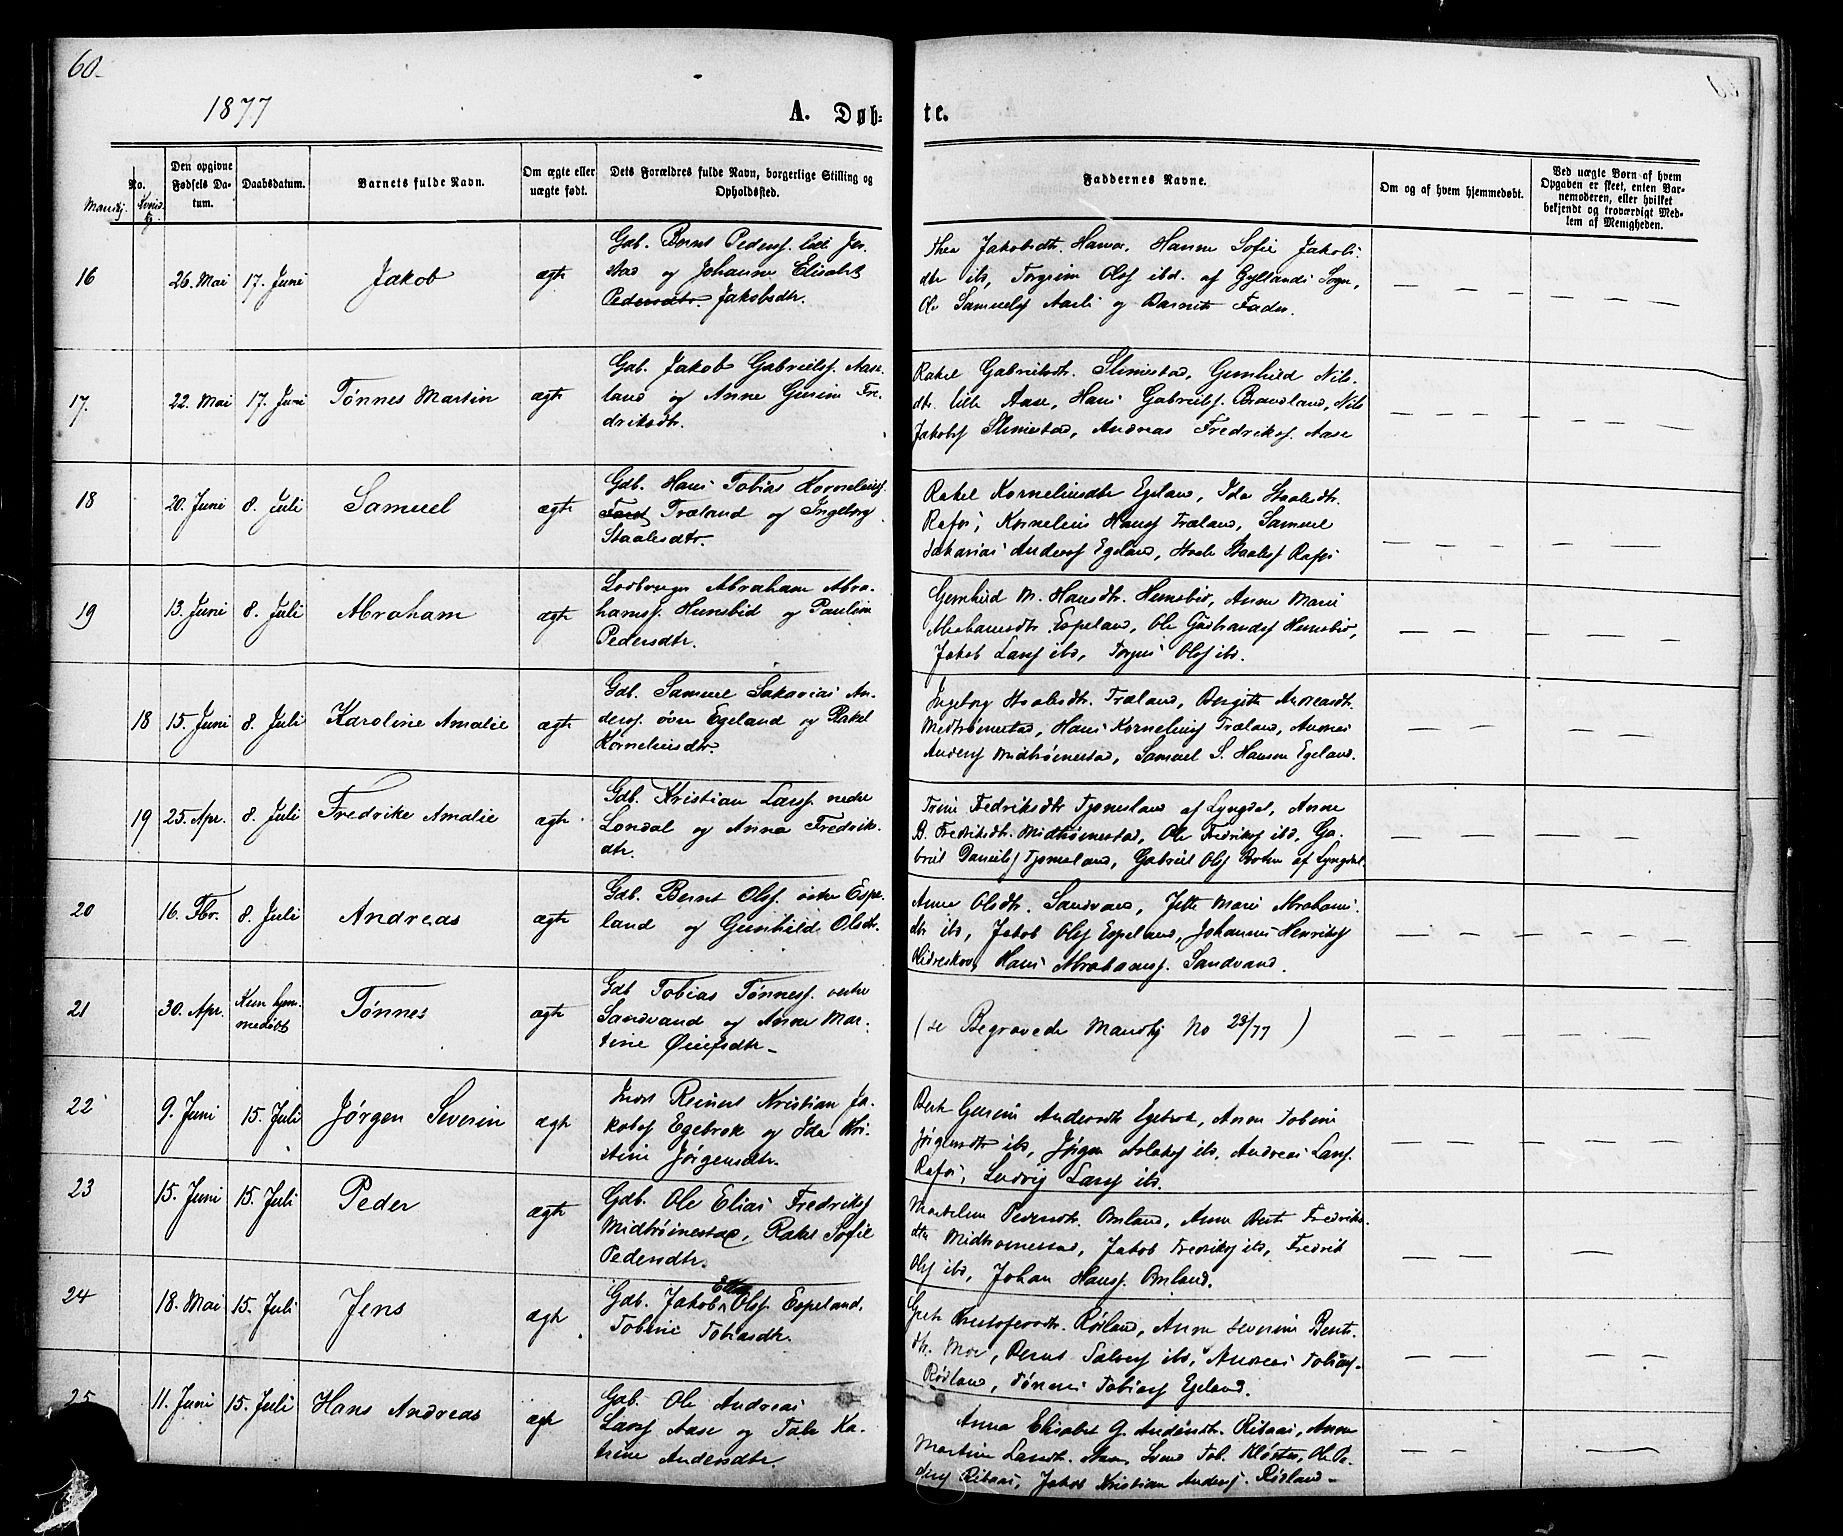 60.
1877
A. Døb-
te.
No.
Mandkj.
Kvindkj.
Den opgivne Fødsels Datum.
Daabsdatum.
Barnets fulde Navn.
Om ægte eller uægte født.
Dets Forældres fulde Navn, borgerlige Stilling og Opholdssted.
Faddernes Navne.
Om og af hvem hjemmedøbt.
Ved uægte Børn af hvem Opgaven er skeet, enten Barnemoderen, eller hvilket bekjendt og troværdigt Medlem af Menigheden.
16 26. Mai 17. Juni Jakob ægte
Gdb. Bernt Peders. lille
stad og Johanne Elisabet
Pedersdtr. Jakobsdtr.
Thea Jakobsdtr. Hamar, Hanne Sofie Jakobs-
dtr ibd, Torgrim Olsf ibd. af Gyllands Sogn,
Ole Samuelsf Aasli og Barnets Fader.
17. 22. Mai 17. Juni Tønnes Martin ægte
Gdb. Jakob Gabrielsf. Aase-
land og Anne Gurine Fre-
driksdtr.
Rakel Gabrielsdtr. Slimestad, Gunhild Nils-
dtr. lille Aase, Hans Gabrielsf. Brandland, Nils
Jakobsf Slimestad, Andreas Fredriksf. Aase
18 20. Juni 8. Juli Samuel ægte
Gdb. Hans Tobias Korneliusf.
Træland og Ingeborg
Staalesdtr.
Rakel Korneliusdtr Egeland, Ida Staalesdtr.
Rafos, Kornelius Hansf Træland, Samuel
Sakarias Andersf Egeland, Staale Staalesf Rafos
19 13. Juni 8. Juli Abraham ægte
Abraham Abra-
hamsf. Hunsbed og Pauline
Pedersdtr.
Gunhild M. Hansdtr. Hunsbed, Anne Marie
Abrahamsdtr Espeland, Ole Gudbrandsf Hunsbed,
Jakob Larsf ibd, Torgus Olsf ibd.
18 15. Juni 8. Juli Karoline Amalie ægte
Gdb. Samuel Sakarias An-
dersf. øvre Egeland og Rakel
Korneliusdtr.
Ingeborg Staalesdtr. Træland, Bergitte Andreasdtr.
Midtbrømestad, Hans Korneliusf Træland, Andreas
Andersf Midtbrømestad, Samuel S. Hansen Egeland.
19 25. Apr. 8. Juli Fredrike Amalie ægte
Gdb. Kristian Larsf. nedre
Londal og Anna Fredriks-
dtr.
Trine Fredriksdtr Tjomsland af Lyngdal, Anne
B. Fredriksdtr. Midtbrømestad, Ole Fredriksf ibd, Ga-
briel Danielsf Tjomsland, Gabriel Olsf af Lyngdal
20 16. Fbr. 8. Juli Andreas ægte
Gdb. Bernt Olsf. østre Espe-
land og Gunhild Olsdtr.
Anne Olsdtr. Sandvand, Jette Marie Abrahams-
dtr ibd, Jakob Olsf Espeland, Johannes Henriksf
Hidreskov, Hans Abrahamsf. Sandvand.
21 30. Apr. Kun hjem-
medøbt Tønnes ægte
Gdb Tobias Tønnesf. vestre
Sandvand og Anne Mar-
tine Øiufsdtr
(se Begravede Mandkj No 23/77)
22 9. Juni 15. Juli Jørgen Severin ægte
Inds Reinert Kristian Ja-
kobsf Egebrok og Ida Kri-
stine Jørgensdtr.
Berte Gurine Andersdtr Egebrok, Anne Tobine
Jørgensdtr ibd, Jørgen Aslaksf ibd, Andreas Larsf.
Rafos, Ludvig Larsf ibd.
23 15. Juni 15. Juli Peder ægte
Gdb. Ole Elias Fredriksf
Midtbrømestad, Rakel Sofie
Pedersdtr.
Pedersdtr. Omland, Anne Berte Fredriks-
dtr Midtbrømestad, Jakob Fredriksf ibd, Fredrik
Olsf ibd, Johan Hansf. Omland.
24 18. Mai 15. Juli Jens ægte
Gdb. Jakob Elias Olsf. Espeland,
Tobine Tobiasdtr.
Grete Kristofersdtr. Rødland, Anne Severine Bents-
dtr. Moe, Bernt Salvesf ibd, Andreas Tobiasf.
Rødland, Tønnes Tobiasf Egeland.
25 11. Juni 15. Juli Hans Andreas ægte
Gdb. Ole Andreas
Larsf Aase og Tale Ka-
trine Andersdtr.
Anna Elisabet G. Andersdtr. Ribaas, Anne
Martine Larsdtr. Aase, Svend Tob. Kloster, Ole Pe-
dersf Ribaas, Jakob Kristian Andersf. Rødland